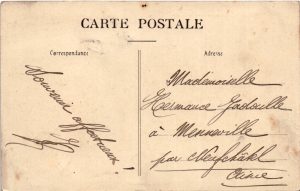 CARTE POSTALE
Correspondance
Adresse
Souvenir affectueux!
Mademoiselle
Hermance
à Menneville
par Neufchâtel
Aisne